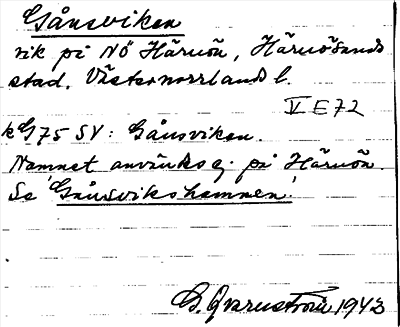 Gånsviken
vik på NÖ Härnön, Härnösands
stad, Västernorrlands l.
V E 72
kG 75 SV: Gånsviken.
Namnet användes ej på Härnön.
Se 'Gånsvikshamnen'.
B. Qvarnström 1943